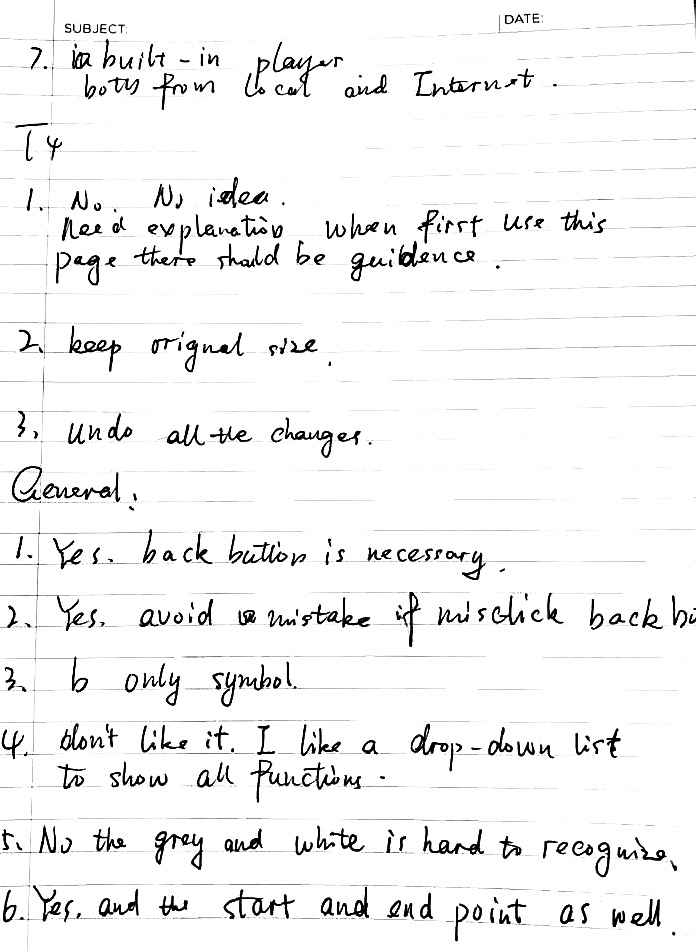 SUBJECT:
DATE:
7. built-in player
both from local and Internet.
T4
1. No. No idea.
Need explanation when first use this
page there should be guidence.
2. keep orignal size.
3. undo all the changes.
General:
1. Yes. back button is necessary.
2. Yes. avoid mistake if misclick back bu
3. b only symbol.
4. don't like it. I like a drop-down list
to show all functions.
5. No the grey and white is hard to recognize.
6. Yes. and the start and end point as well.